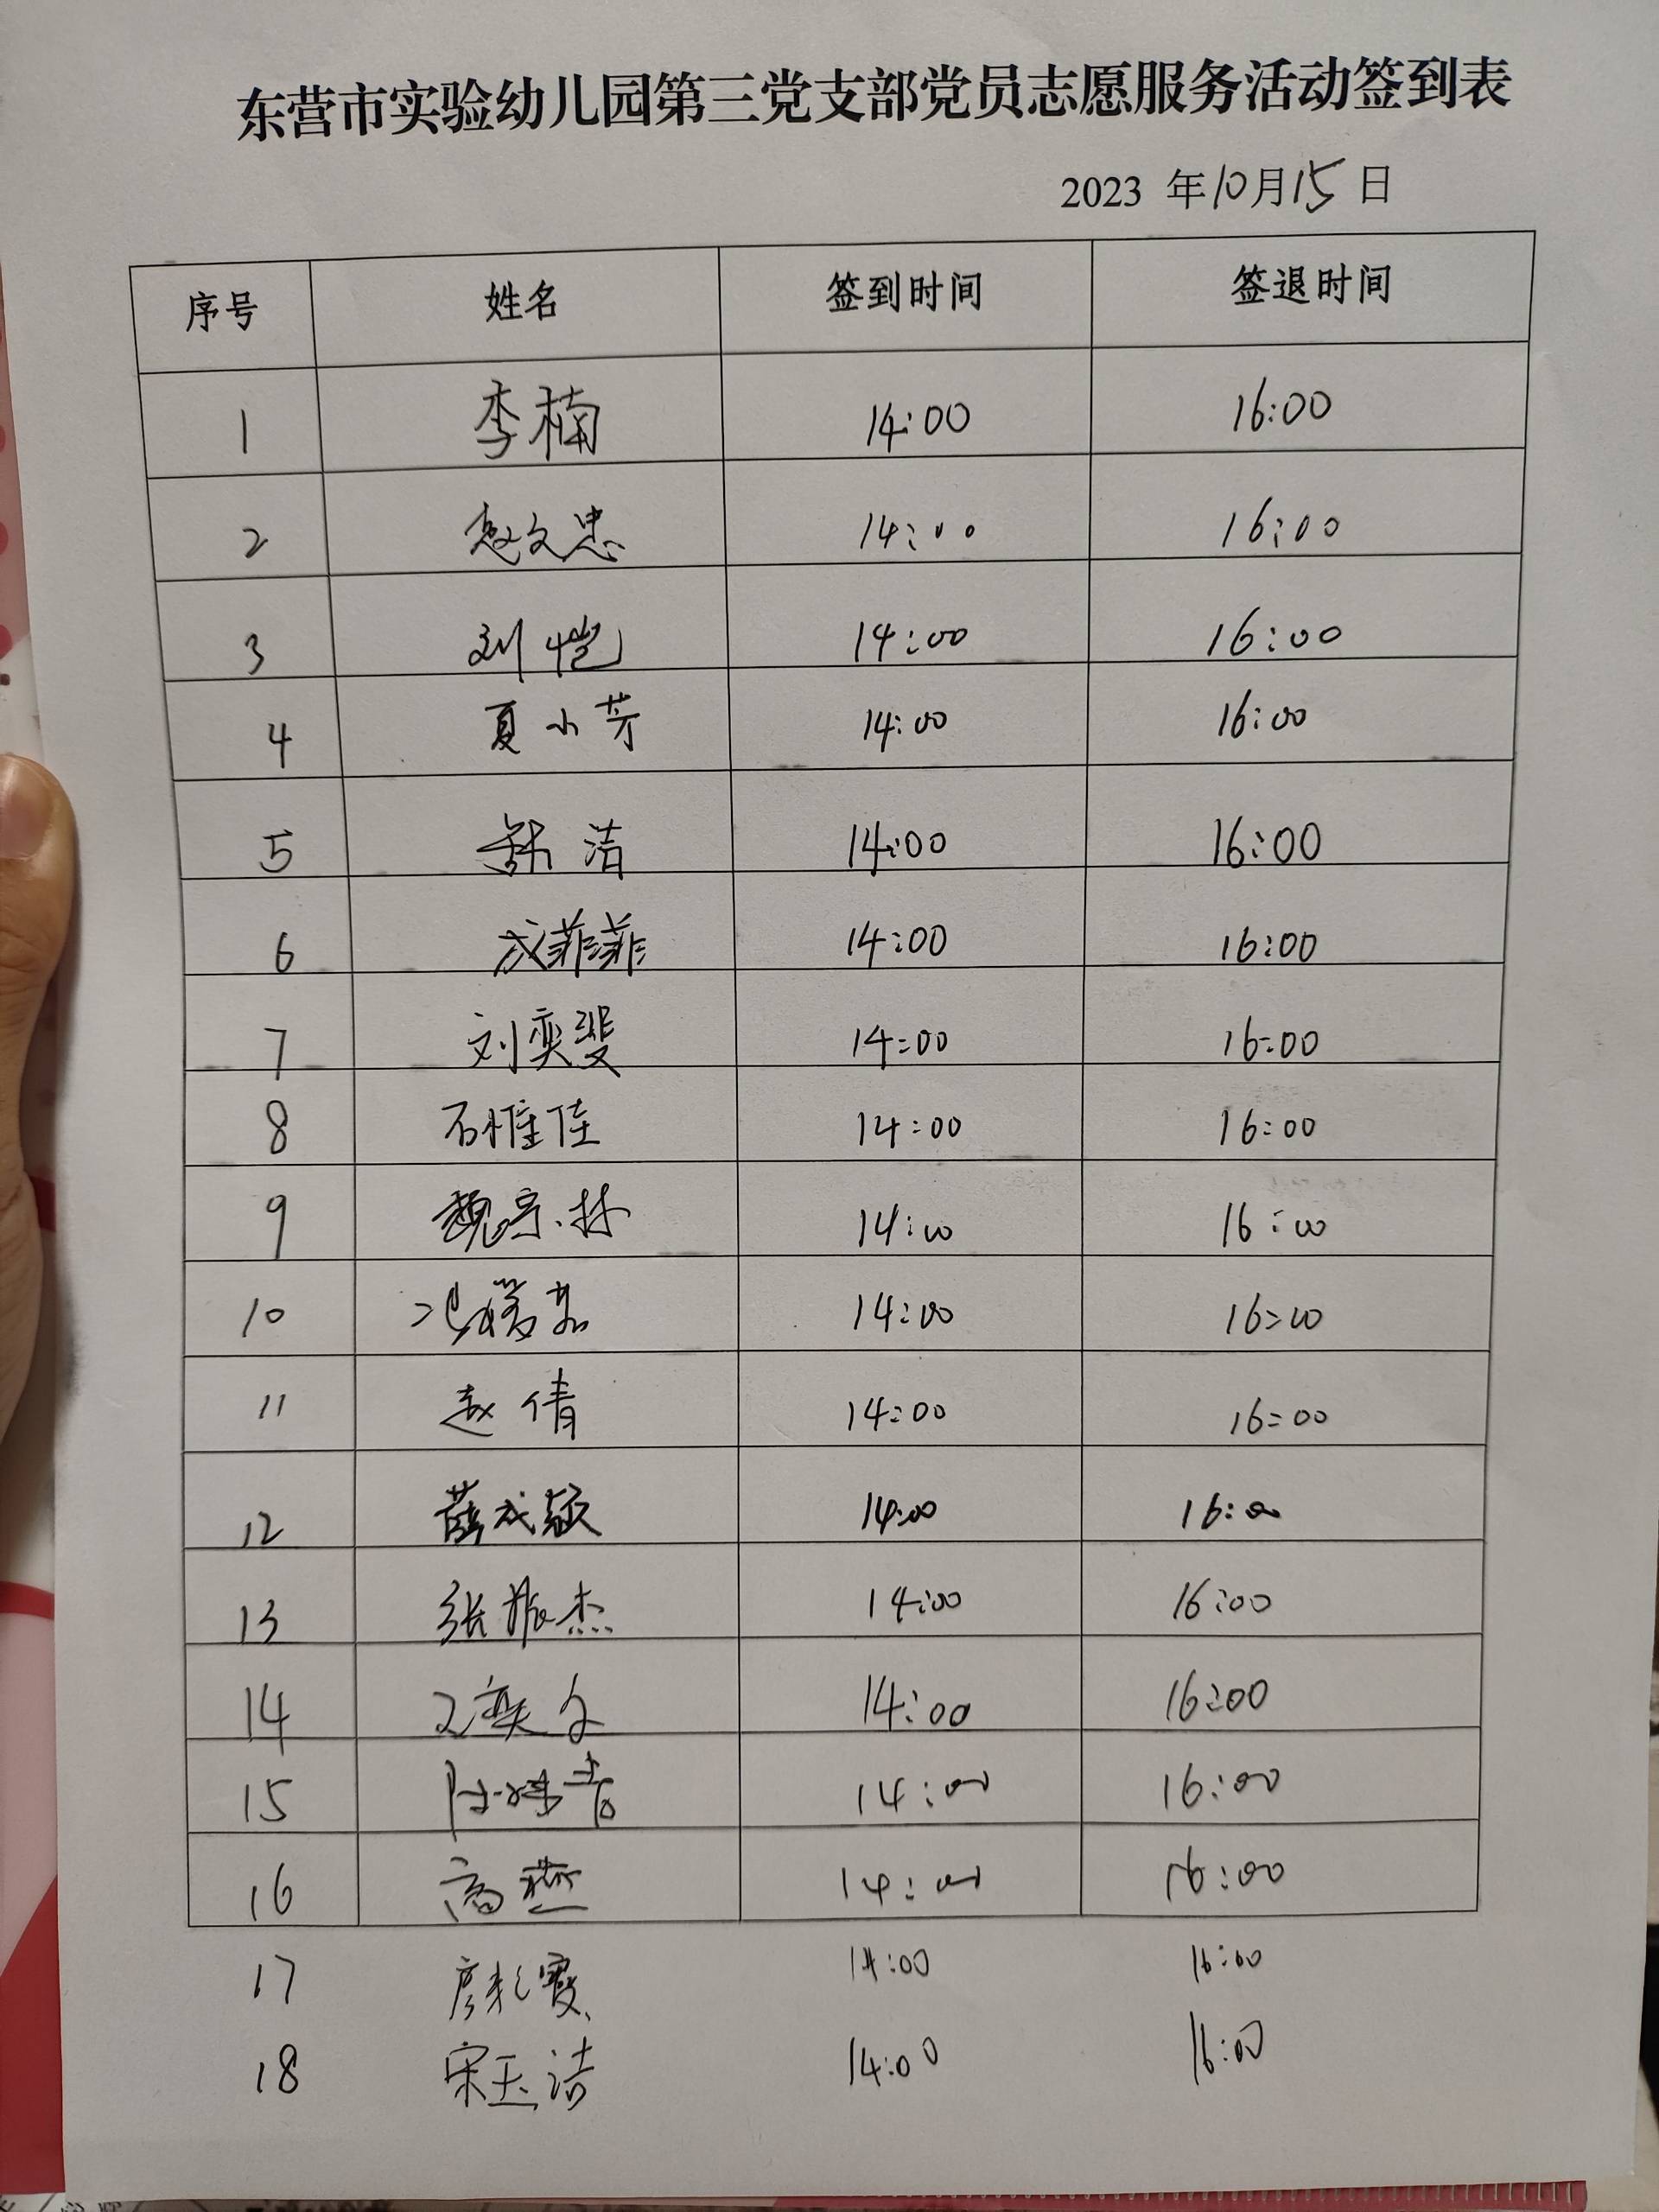 东营市实验幼儿园第三党支部党员志愿服务活动签到表
2023 年10月15日
序号 姓名 签到时间 签退时间
1 李楠 14:00 16:00
2 赵文忠 14:00 16:00
3 刘恺 14:00 16:00
4 夏小芳 14:00 16:00
5 舒洁 14:00 16:00
6 成菲菲 14:00 16:00
7 刘奕斐 14:00 16:00
8 石惟佳 14:00 16:00
9 14:00 16:00
10 14:00 16:00
11 赵倩 14:00 16:00
12 14:00 16:00
13 张振杰 14:00 16:00
14 14:00 16:00
15 14:00 16:00
16 高燕 14:00 16:00
17 14:00 16:00
18 宋玉洁 14:00 16:00